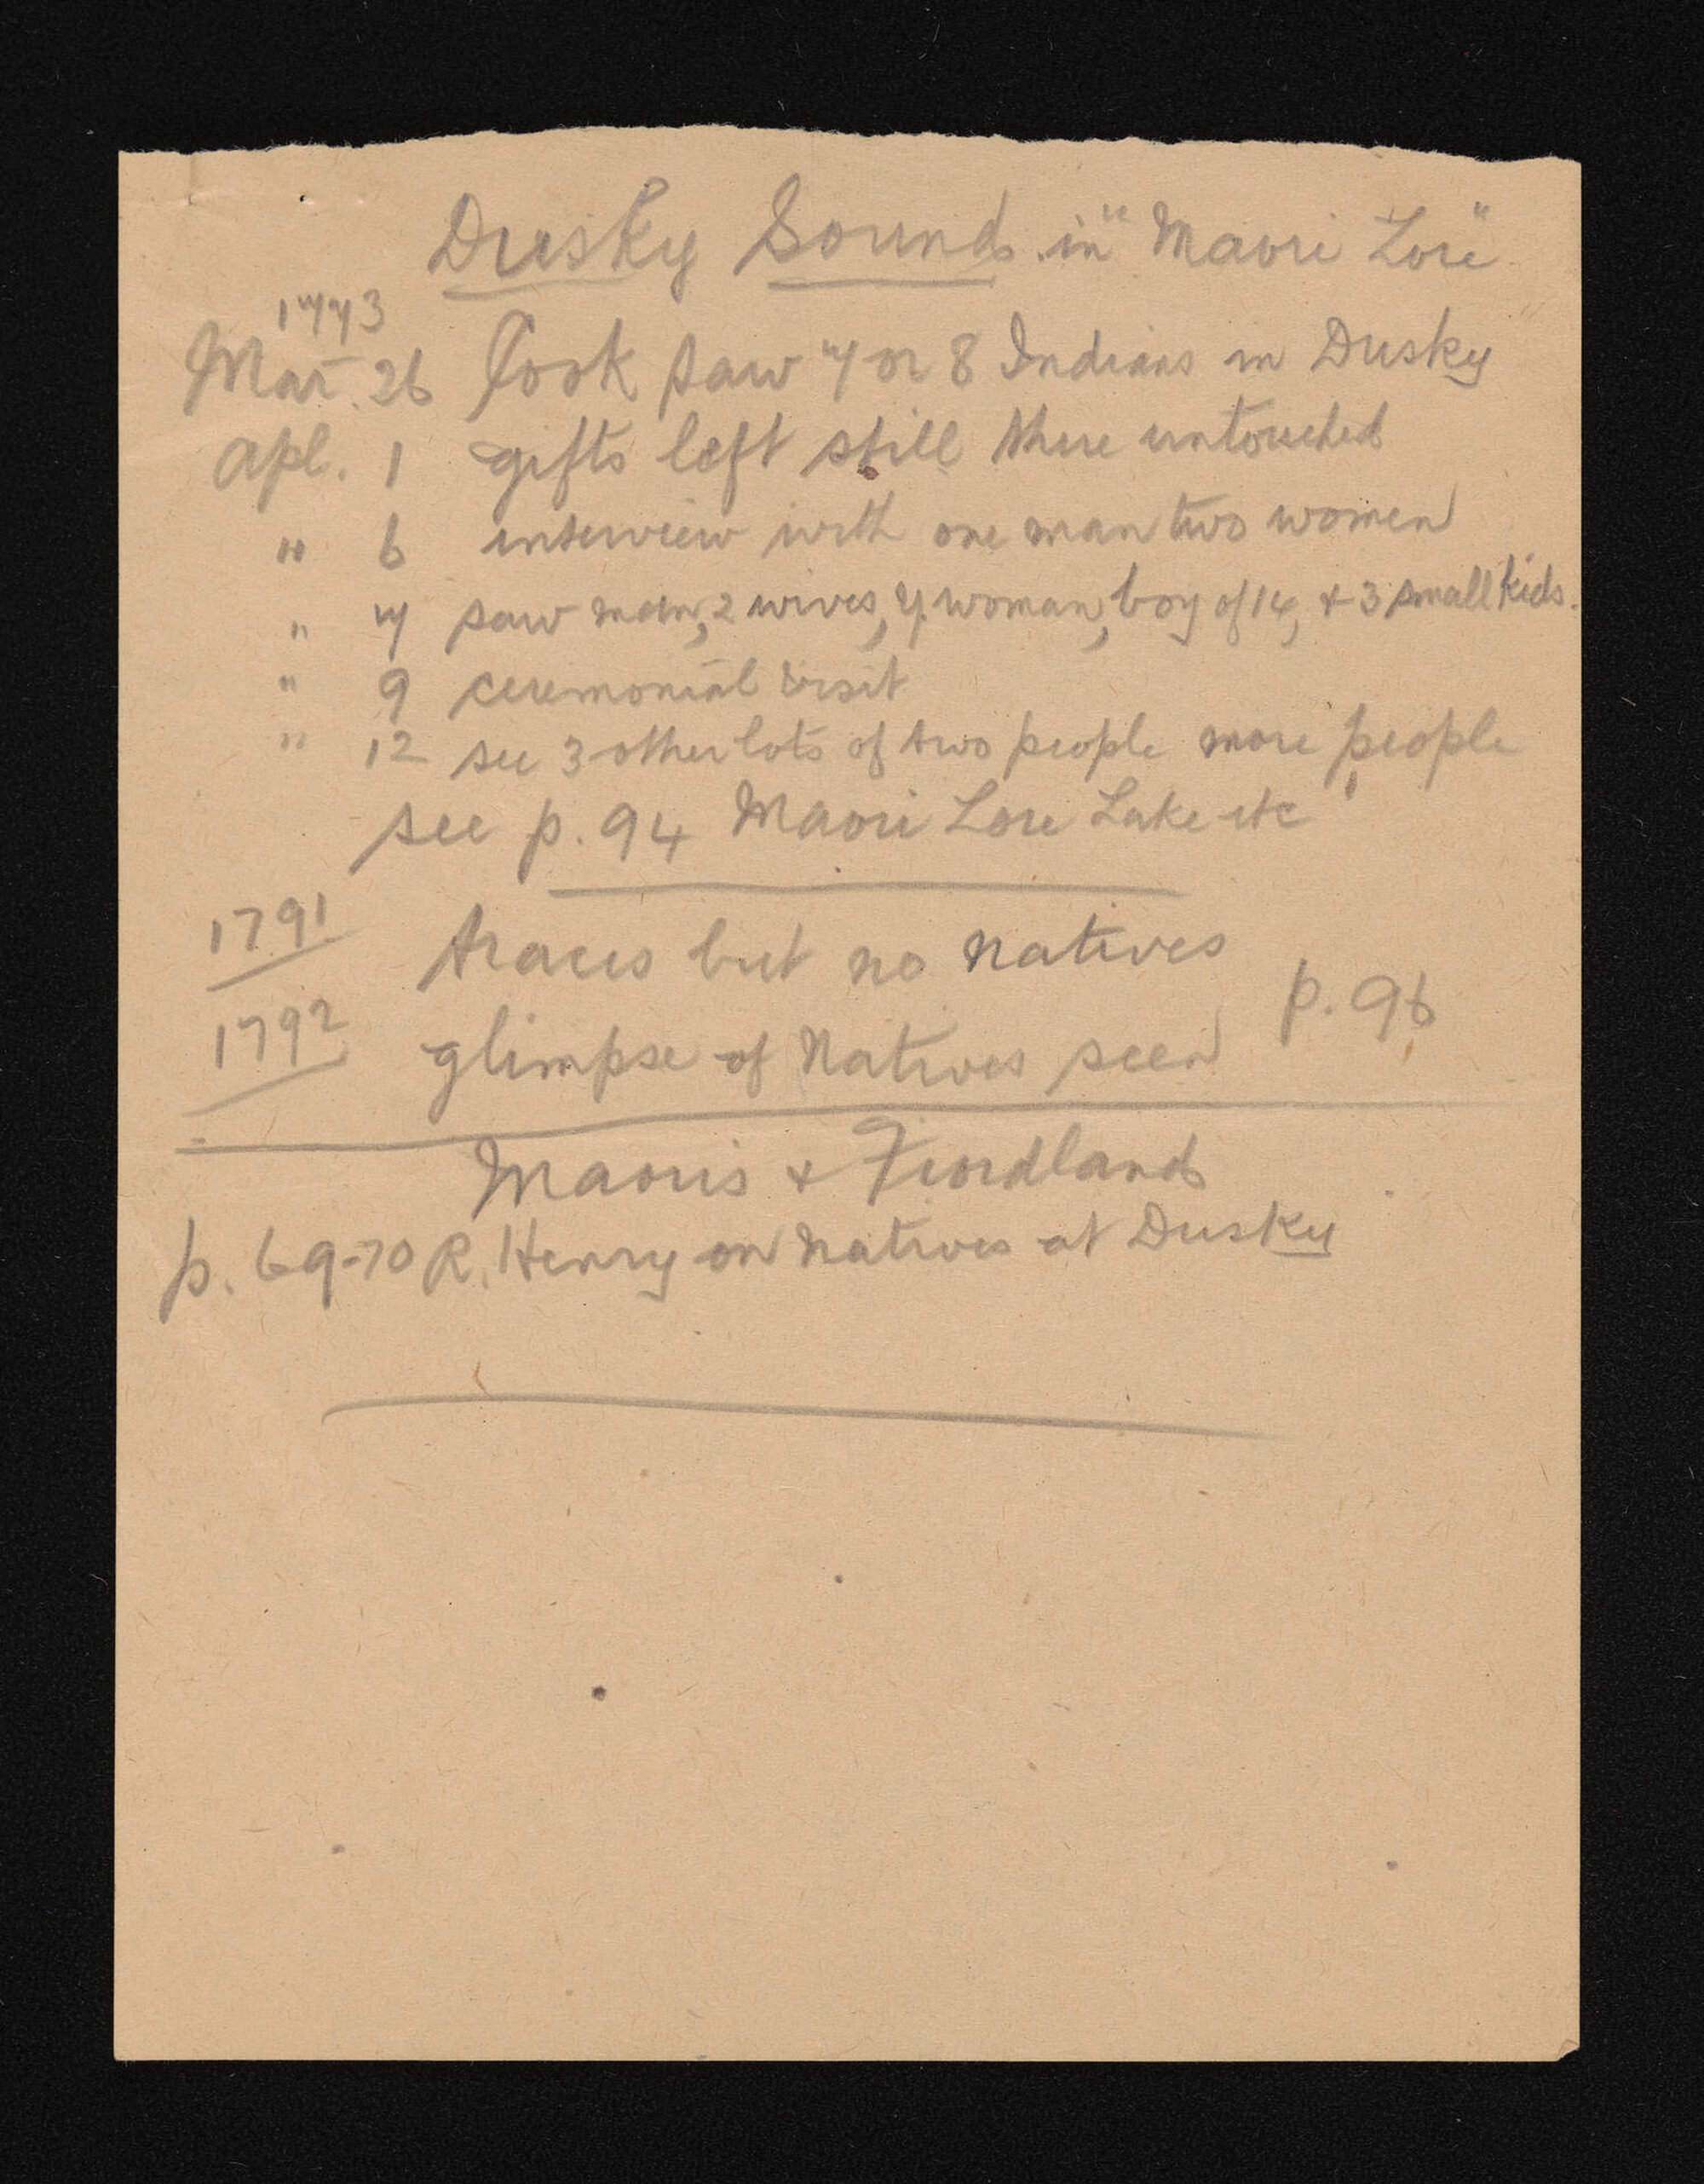 Dusky Sound in "Maori Lore"
1773
Mar. 26 Cook saw 7 or 8 Indians in Dusky
Apl. 1 gifts left still there untouched
" 6 interview with one man two women
" 7 saw man, 2 wives, y. woman, boy of 14, + 3 small kids.
" 9 ceremonial visit
" 12 see 3 other lots of two people more people
see p. 94 Maori Lore Lake etc
1791 traces but no natives
p. 96
1792 glimpse of Natives seen
Maoris + Fiordland
p. 69-70 R. Henry on natives at Dusky